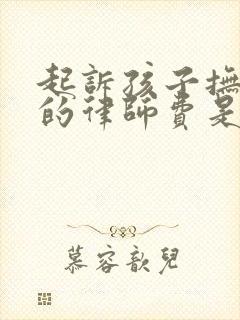 起訴孩子撫
的律師費是
慕容歆兒